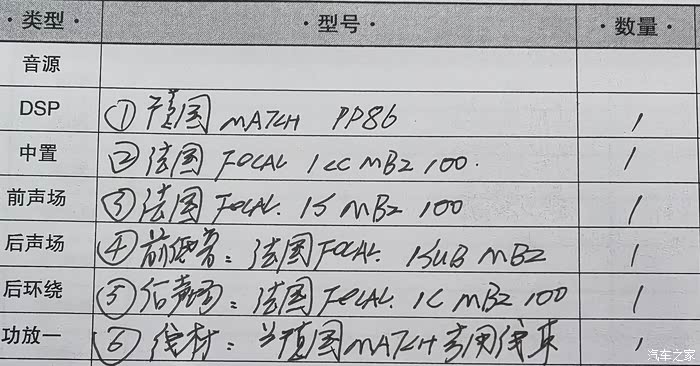 ·类型· ·型号· ·数量·
音源
DSP ①德国 MATCH PP86 1
中置 ②法国 FOCAL ICC MBZ 100. 1
前声场 ③法国 FOCAL. IS MBZ 100 1
后声场 ④前低音：法国FOCAL. ISUB MBZ 1
后环绕 ⑤后声场：法国FOCAL. IC MBZ 100 1
功放一 ⑥线材：德国MATCH专用线束 1
汽车之家